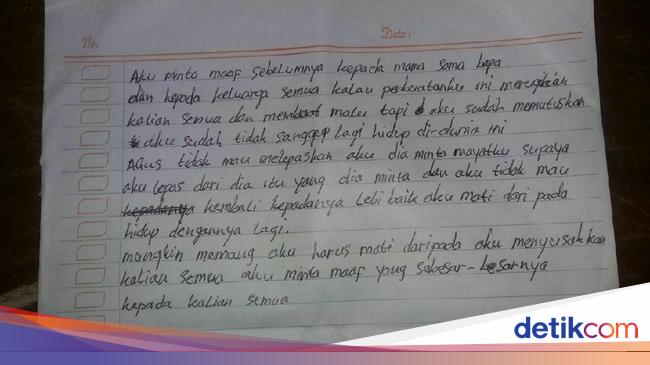 No.
Date:
Aku minta maaf sebelumnya kepada mama sama bapa
dan kepada keluarga semua kalau perkerataanku ini merugikan
kalian semua dan membuat malu tapi aku sudah memutuskan
aku sudah tidak sanggup lagi hidup di dunia ini
Agus tidak mau melepaskan aku dia minta mayatku supaya
aku lepas dari dia itu yang dia minta dan aku tidak mau
kembali kepadanya Lebi baik aku mati dari pada
hidup dengannya lagi.
mungkin memang aku harus mati daripada aku menyusahkan
kalian semua aku minta maaf yang sebesar-besarnya
kepada kalian semua
detikcom